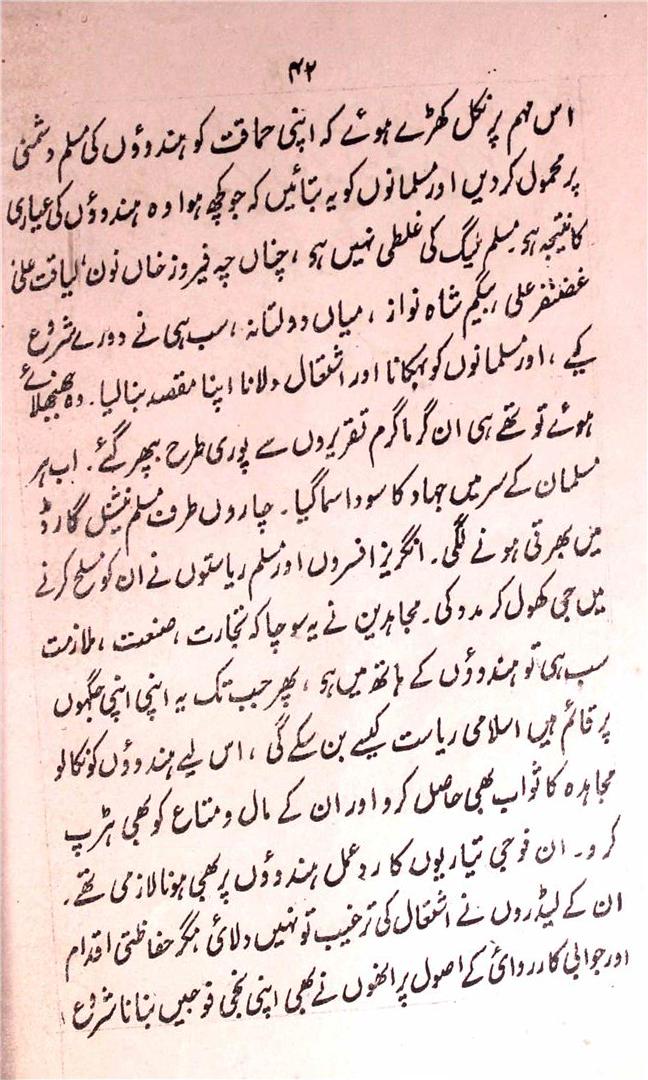 ۴۲
اس مہم پر نکل کھڑے ہوئے کہ اپنی حماقت کو ہندوؤں کی مسلم دشمنی
پر محمول کر دیں اور مسلمانوں کو یہ بتائیں کہ جو کچھ ہوا وہ ہندوؤں کی عیاری
کا نتیجہ ہے۔ مسلم لیگ کی غلطی نہیں ہے، چناں چہ فیروز خاں نون، لیاقت علی
غضنفر علی، بیگم شاہ نواز، میاں دولتانہ، سب ہی نے دورے شروع
کیے، اور مسلمانوں کو بہکانا اور اشتعال دلانا اپنا مقصد بنا لیا۔ وہ جھنجھلائے
ہوئے تو تھے ہی ان گرما گرم تقریروں سے پوری طرح بپھر گئے۔ اب ہر
مسلمان کے سر میں جہاد کا سودا سما گیا۔ چاروں طرف مسلم نیشنل گارڈ
میں بھرتی ہونے لگی۔ انگریز افسروں اور مسلم ریاستوں نے ان کو مسلح کرنے
میں جی کھول کر مدد کی۔ مجاہدین نے یہ سوچا کہ تجارت، صنعت، ملازمت
سب ہی تو ہندوؤں کے ہاتھ میں ہے، پھر جب تک یہ اپنی اپنی جگہوں
پر قائم ہیں اسلامی ریاست کیسے بن سکے گی، اس لیے ہندوؤں کو نکالو
مجاہدہ کا ثواب بھی حاصل کرو اور ان کے مال و متاع کو بھی ہڑپ
کرو۔ ان فوجی تیاریوں کا ردعمل ہندوؤں پر بھی ہونا لازمی تھے۔
ان کے لیڈروں نے اشتعال کی ترغیب تو نہیں دلائی مگر حفاظتی اقدام
اور جوابی کارروائی کے اصول پر انھوں نے بھی اپنی نجی فوجیں بنانا شروع